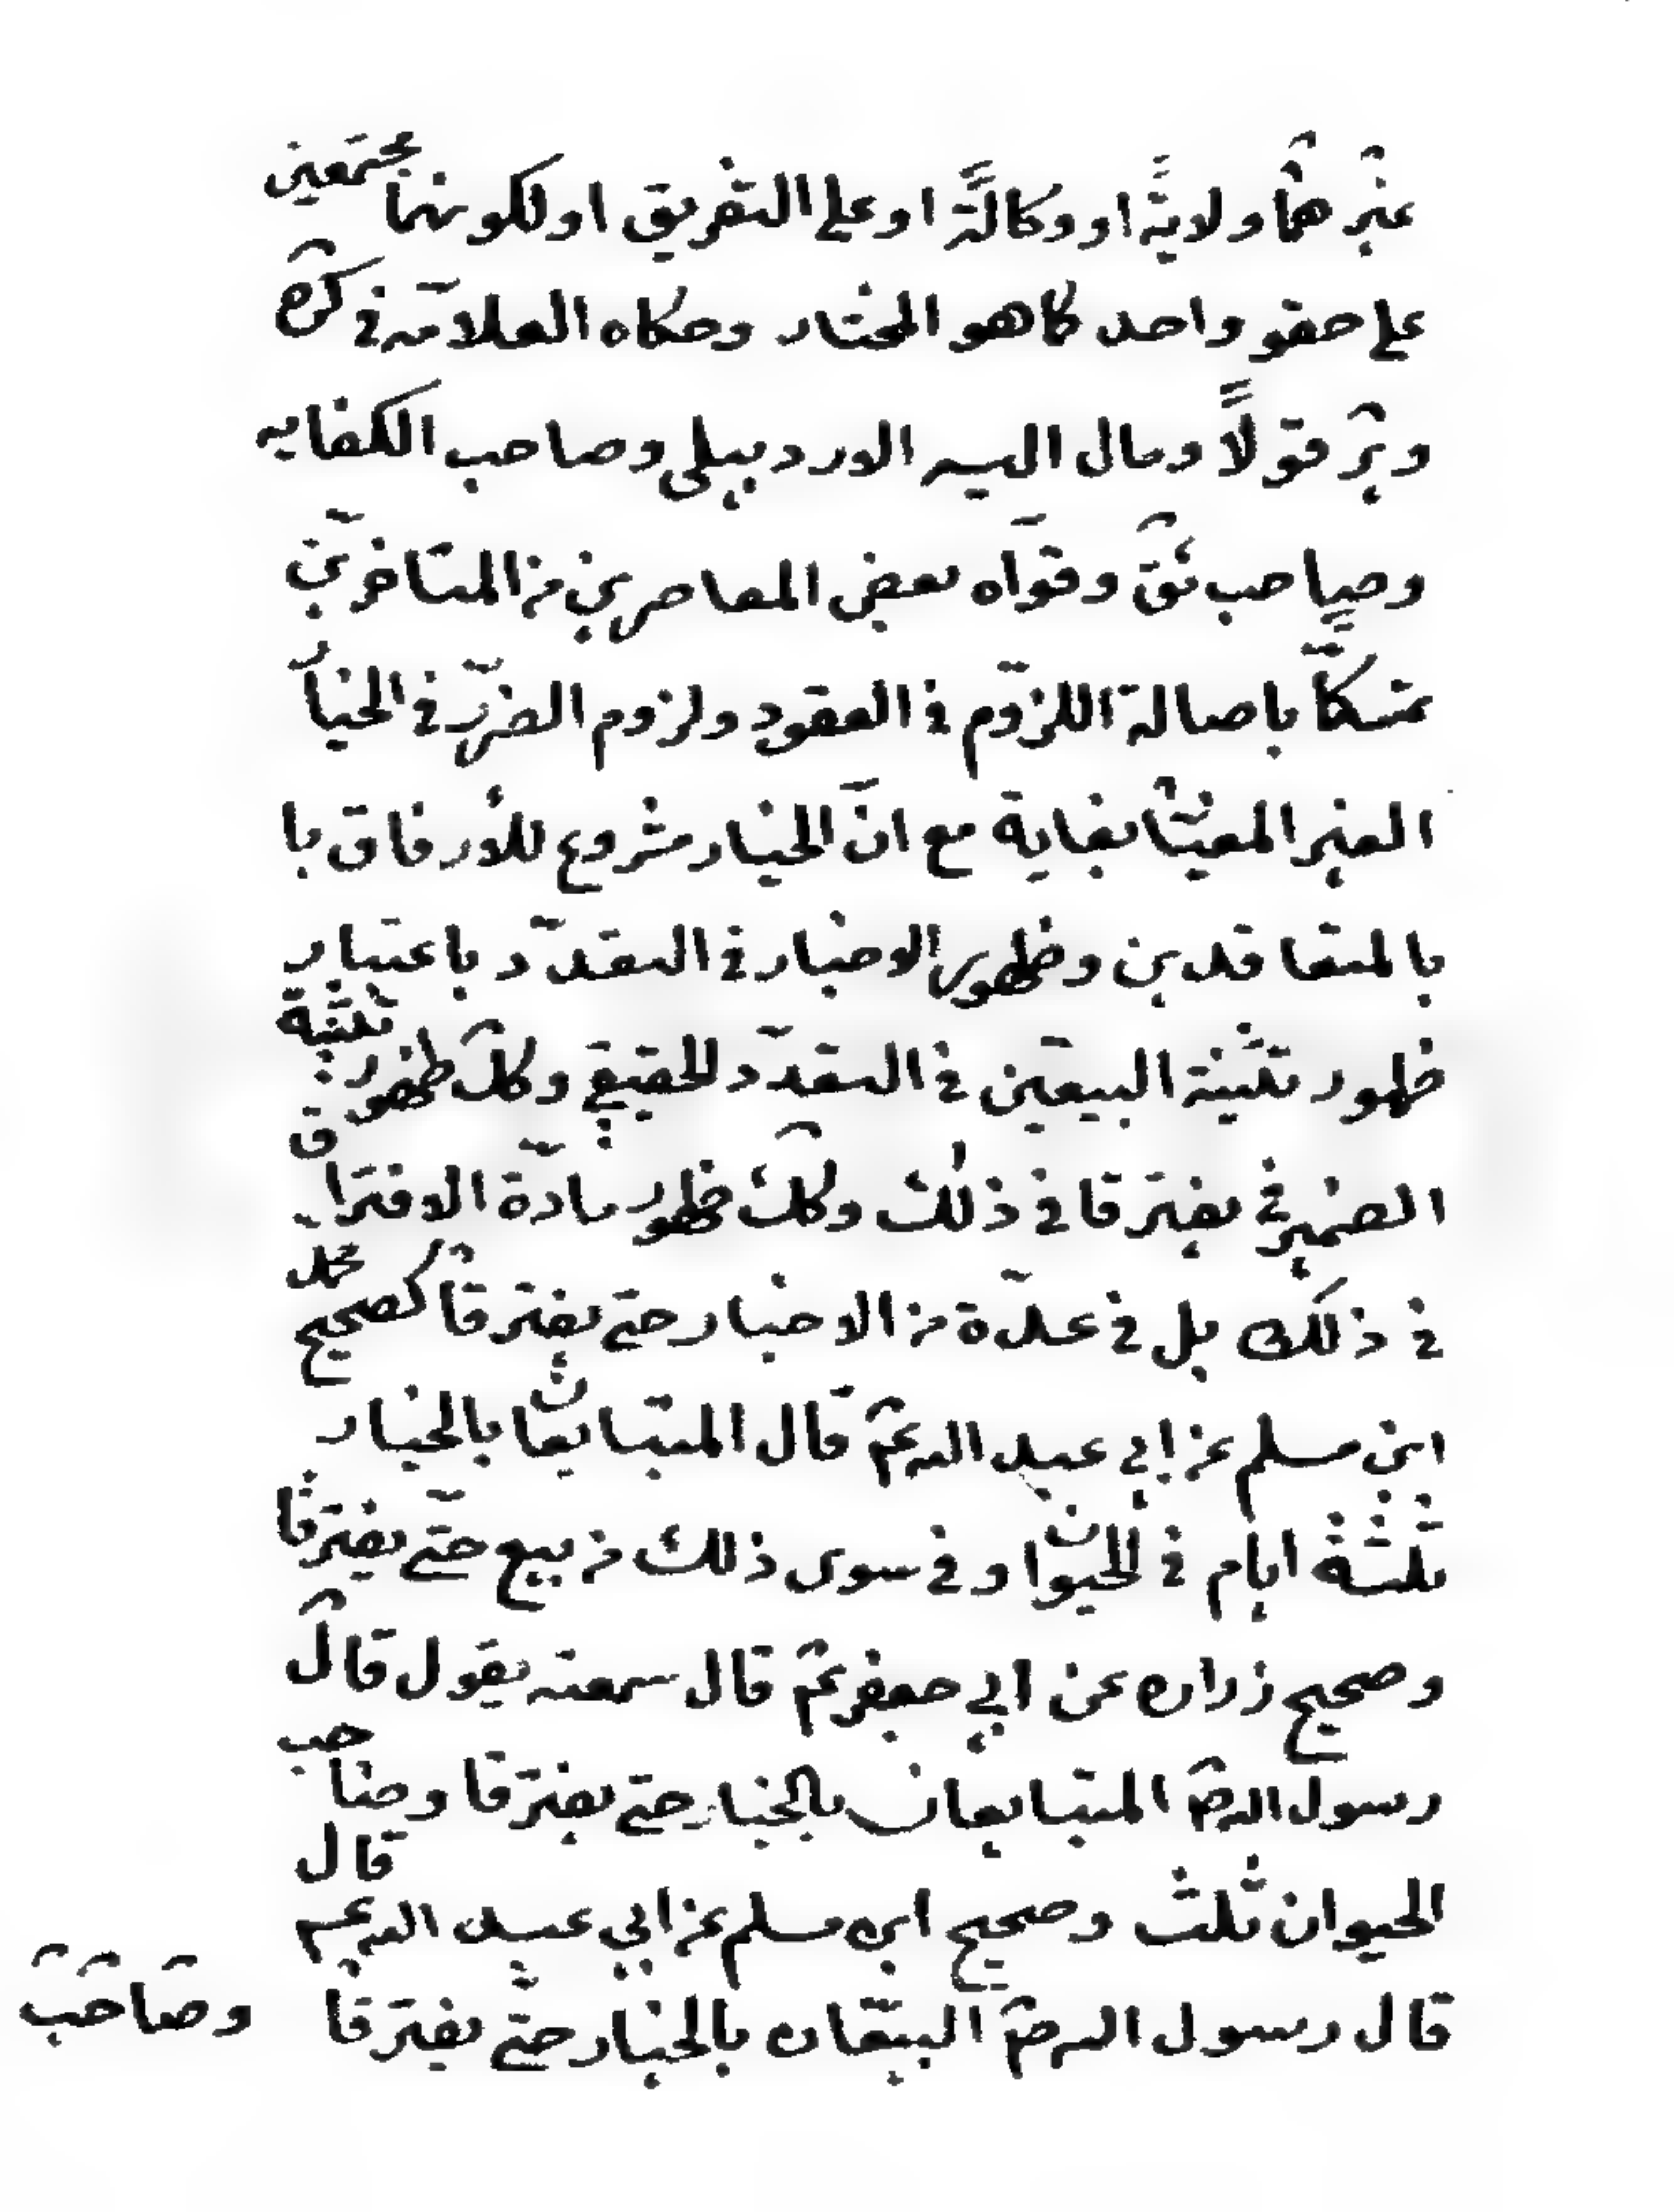 غيرهما ولاية او وكالة او على التفريق او لكونهما مجتمعين
على حقو واحد كما هو المختار وحكاه العلامة في كره
وير قولاً ومال اليه الاردبيلى وصاحب الكفايه
وصاحب ئق وقواه بعض المعاصرين من المتاخرين
تمسكاً باصالة اللزوم في العقود ولزوم الضرر في الخيار
الغير المغيّا بغاية مع انّ الخيار مشروع للأرفاق با
بالمتعاقدين وظهور الاخبار في التعدّد باعتبار
ظهور تثنية البيعين في التعدّد الحقيقي وكك ظهور تثنية
الضمير في يفترقا في ذلك وكك ظهور مادّة الافتراق
في ذلك بل في عدّة من الاخبار حتى يفترقا كصحيح محمد
ابن مسلم عن ابي عبد الله عم قال المتبايعان بالخيار
ثلثة ايام في الحيوان وفي سوى ذلك من بيع حتّى يفترقا
وصحيح زراره عن ابي جعفر عم قال سمعته يقول قال
رسول الله ص المتبايعان بالخيار حتى يفترقا وصاحب
الحيوان ثلث وصحيح ابن مسلم عن ابي عبد الله عم قال
قال رسول الله ص البيّعان بالخيار حتّى يفترقا
وصاحب